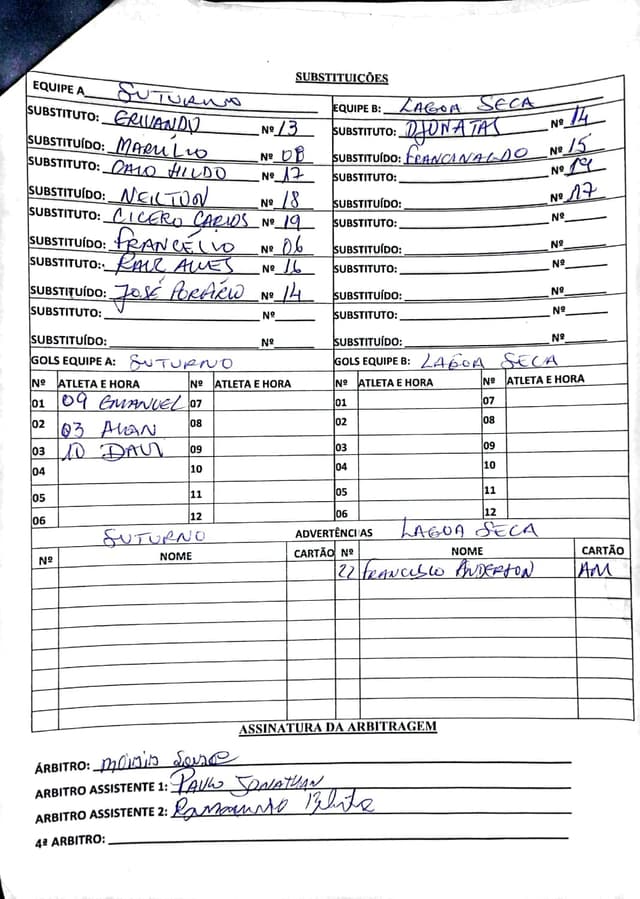 SUBSTITUICÕES
EQUIPE A SUTURNO
SUBSTITUTO: ERIVANDO Nº 13
SUBSTITUÍDO: MARÍLIO Nº 08
SUBSTITUTO: CAIO HILDO Nº 17
SUBSTITUÍDO: NEILTON Nº 18
SUBSTITUTO: CICERO CARLOS Nº 19
SUBSTITUÍDO: FRANCÉLIO Nº 06
SUBSTITUTO: ALVES Nº 16
SUBSTITUÍDO: JOSÉ Nº 14
SUBSTITUTO: Nº
SUBSTITUÍDO: Nº
EQUIPE B: LAGOA SECA
SUBSTITUTO: DJONATAS Nº 14
SUBSTITUÍDO: FRANCINALDO Nº 15
SUBSTITUTO: Nº 19
SUBSTITUÍDO: Nº 17
SUBSTITUTO: Nº
SUBSTITUÍDO: Nº
SUBSTITUTO: Nº
SUBSTITUÍDO: Nº
SUBSTITUTO: Nº
SUBSTITUÍDO: Nº
GOLS EQUIPE A: SUTURNO
Nº ATLETA E HORA Nº ATLETA E HORA
01 09 EMANUEL 07
02 03 ALAN 08
03 10 DAVI 09
04 10
05 11
06 12
GOLS EQUIPE B: LAGOA SECA
Nº ATLETA E HORA Nº ATLETA E HORA
01 07
02 08
03 09
04 10
05 11
06 12
SUTURNO ADVERTÊNCIAS LAGOA SECA
Nº NOME CARTÃO Nº NOME CARTÃO
22 FRANCISCO ANDERSON AM
ASSINATURA DA ARBITRAGEM
ÁRBITRO:
ARBITRO ASSISTENTE 1: PAULO JONATHAN
ARBITRO ASSISTENTE 2:
4ª ARBITRO: